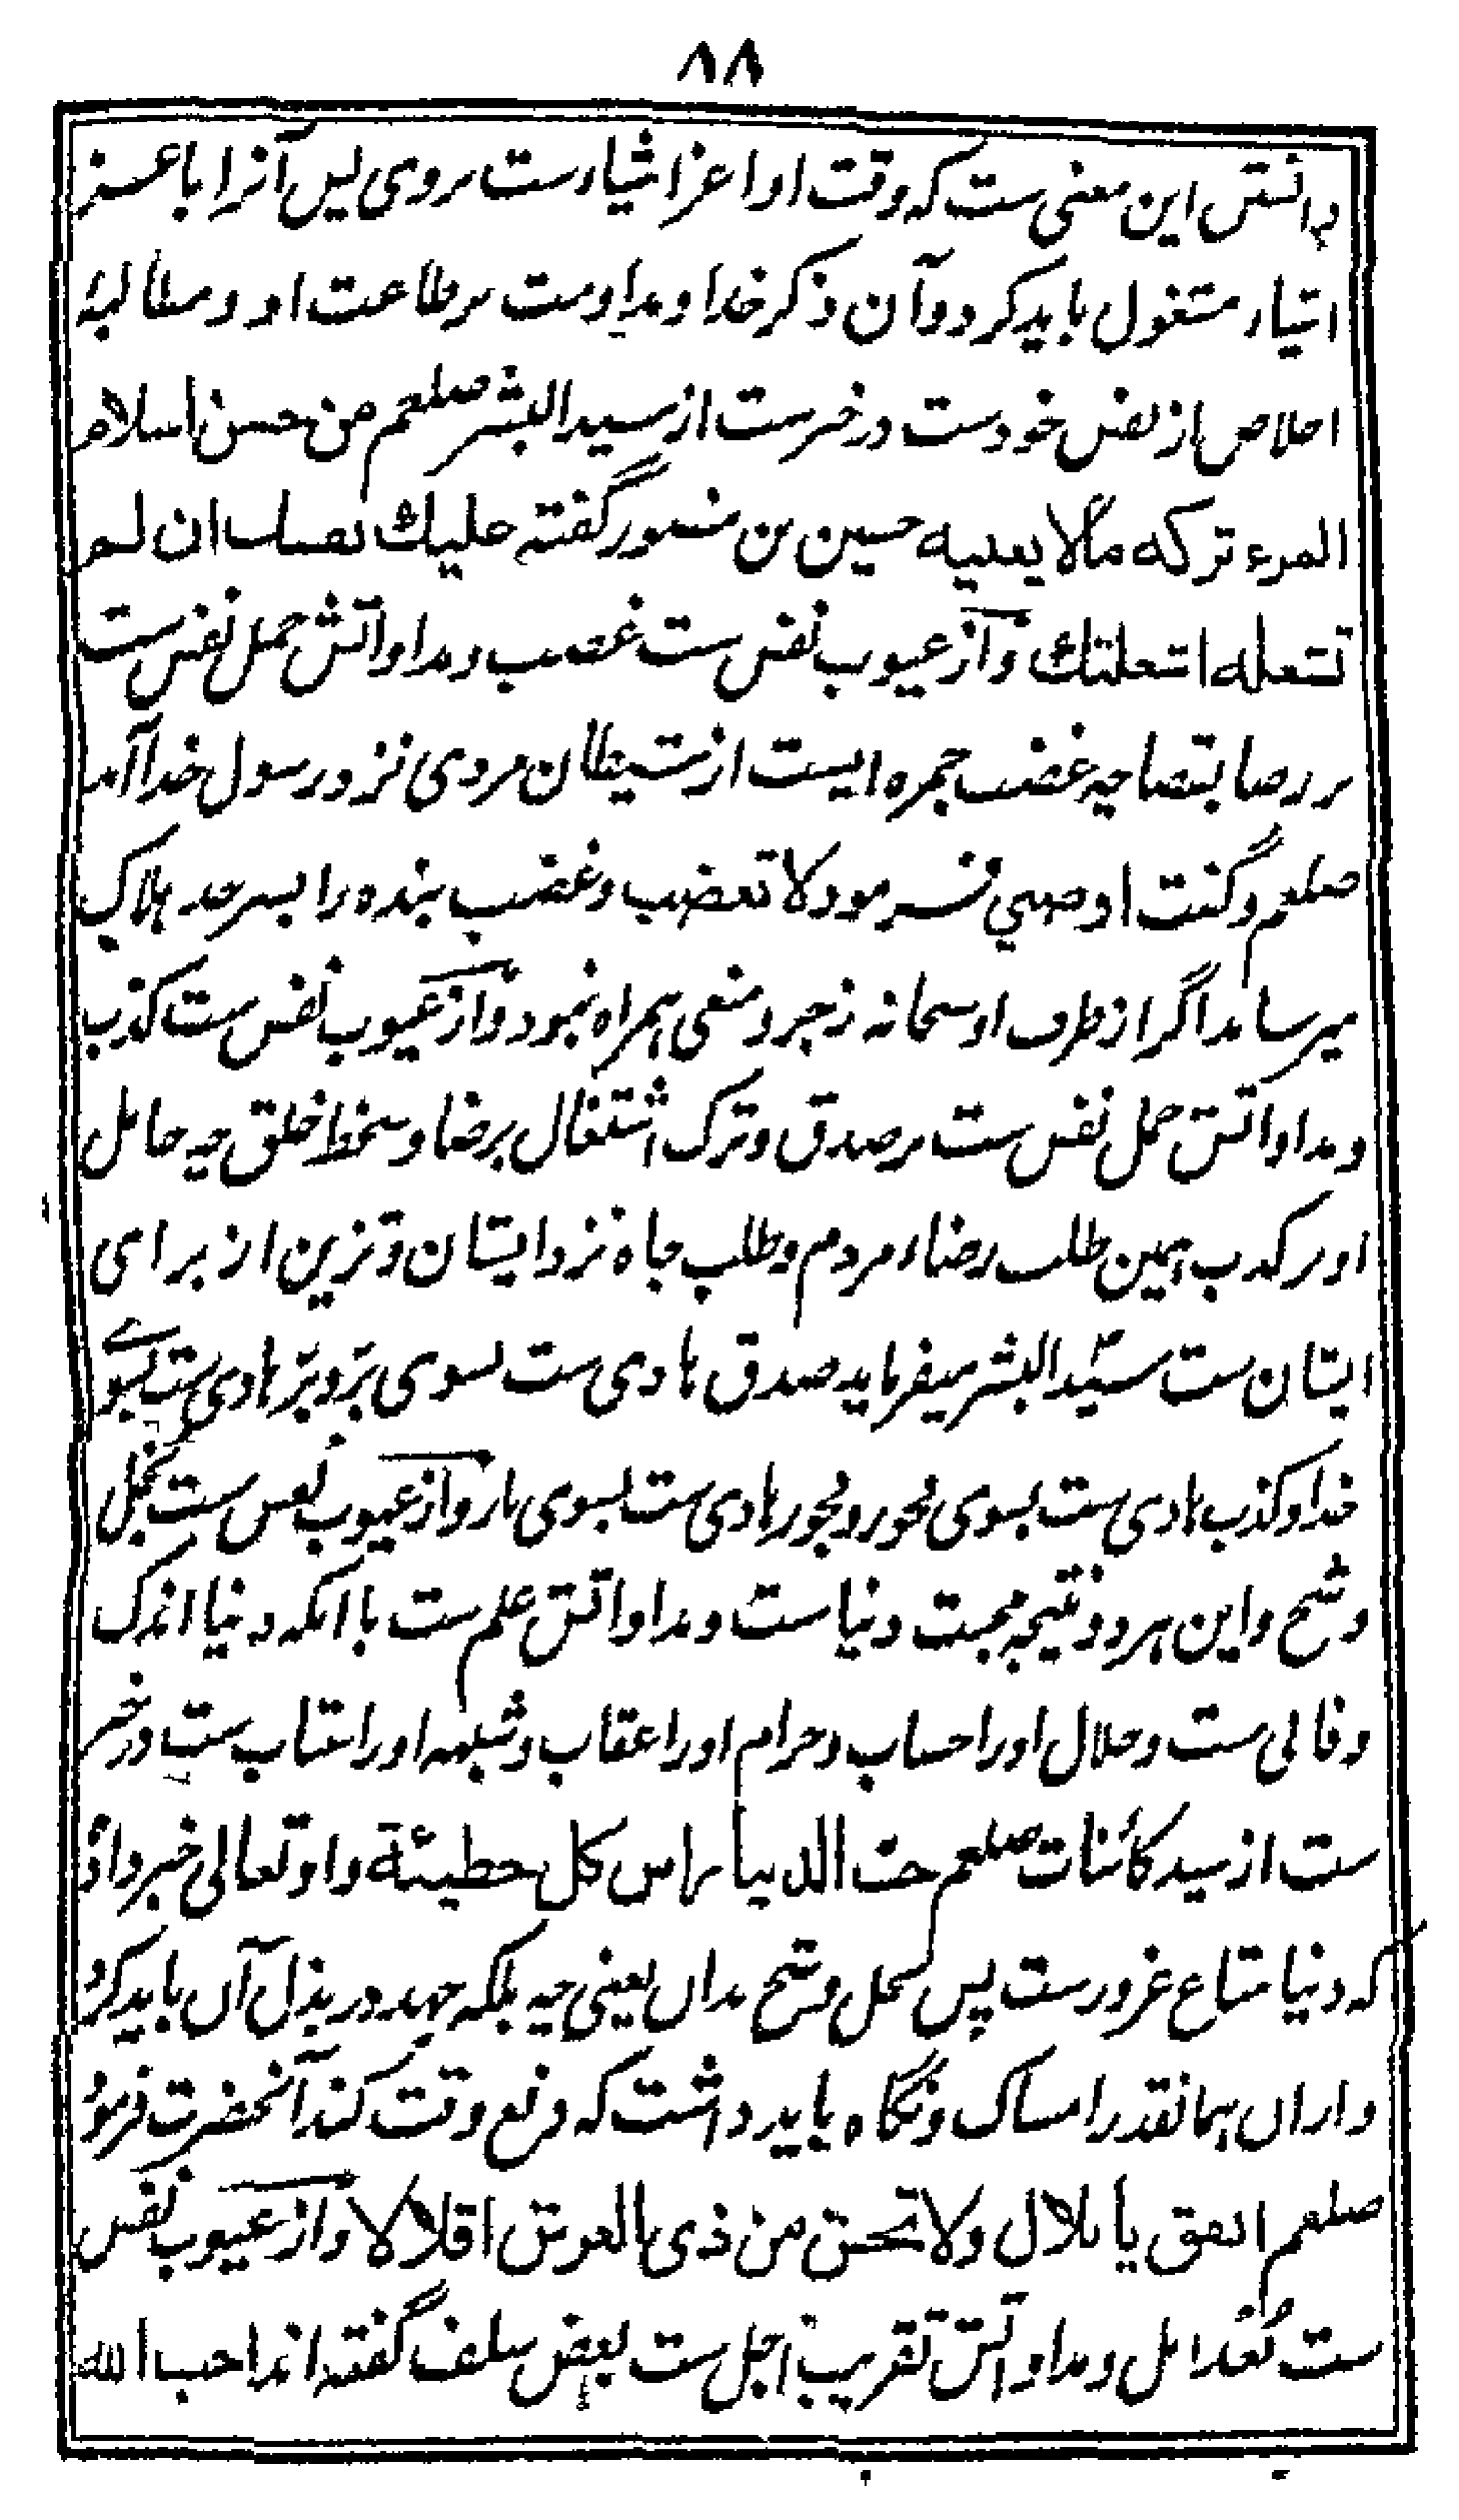 ۸۸
دانستن این معنی ست که وقت او اعز اشیا ست بروی پس آنرا با عز
اشیاء مشغول باید کرد و آن ذکر خدا و مداومت بر طاعت او و مطالبهٔ
اخلاص از نفس خودست در خبرست از سید البشر صلعم من حسن اسلام
المرء تركه مالا يعنيه حسین بن منصور گفته عليك نفسك ان لم
تشغلها شغلتك و از عیوب نفس ست غضب و مداواتش حمل نفس ست
بر رضا بقضا چه غضب جمره ایست از شیطان مردی نزد رسول خدا آمد
صلعم و گفت اوصني فرمود لا تغضب و غضب بنده را بسرحد هلاک
میرساند اگر از طرف او سبحانه زجر و منعی همراه نبود و از عیوب نفس ست کذب
و مداواتش حمل نفس ست بر صدق و ترک اشتغال برضا و سخط خلق چه حامل
او بر کذب همین طلب رضاء مردم و طلب جاه نزد ایشان و تزین از برای
ایشان ست سید البشر میفرماید صدق هادی ست بسوی بر و بر هادی ست بسوے
خدا و کذب هادی ست بسوی فجور و فجور هادی ست بسوی نار و از عیوب نفس ست بخل
و شح و این هر دو نتیجه محبت دنیاست و مداواتش علم ست با آنکه دنیا اندک
و فانی ست و حلال او را حساب و حرام او را عقاب و شبهه او را عتاب ست در خبر
ست از سید کائنات صلعم حب الدنيا راس كل خطيئة و او تعالی خبر داده
که دنیا متاع غرور ست پس بخل و شح بدان یعنی چه بلکه جهد در بذل آن باید کرد
و از ان همانقدر امساک و نگاه باید داشت که دفع وقت کند آنحضرت فرموده
صلعم انفق يا بلال ولا تخش من ذي العرش اقلالا و از عیوب نفس
ست بُعد امل و مداواتش تقریب اجل ست بعض سلف گفته اند احب الله